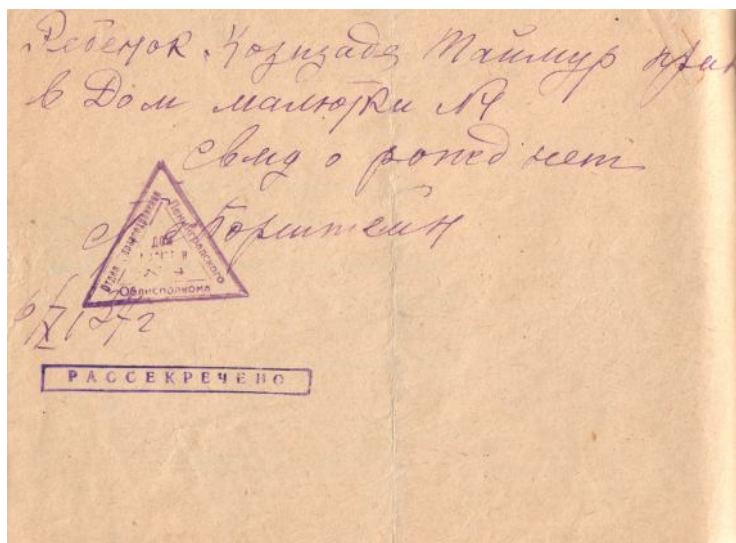 Ребенок Козизада Таймур прин
в Дом малютки №4
свид о рожд нет
Борштейн
Отдел здравоохранения
Ленинградского
Облисполкома
ДОМ
№ 4
РАССЕКРЕЧЕНО